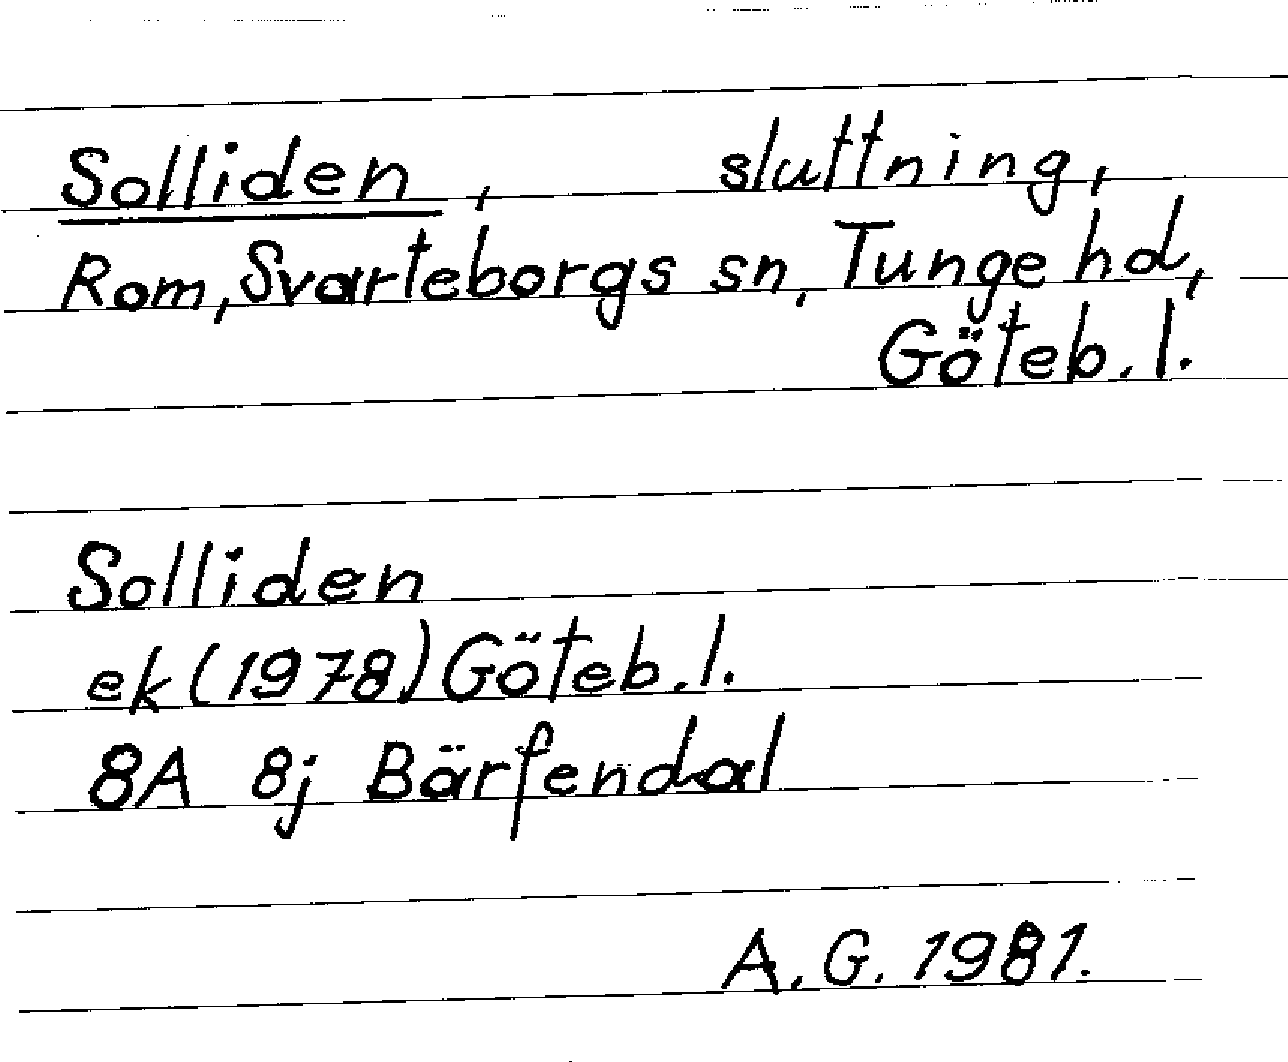 Solliden, sluttning,
Rom, Svarteborgs sn, Tunge hd,
Göteb. l.
Solliden
ek (1978) Göteb. l.
8A 8j Bärfendal
A. G. 1981.